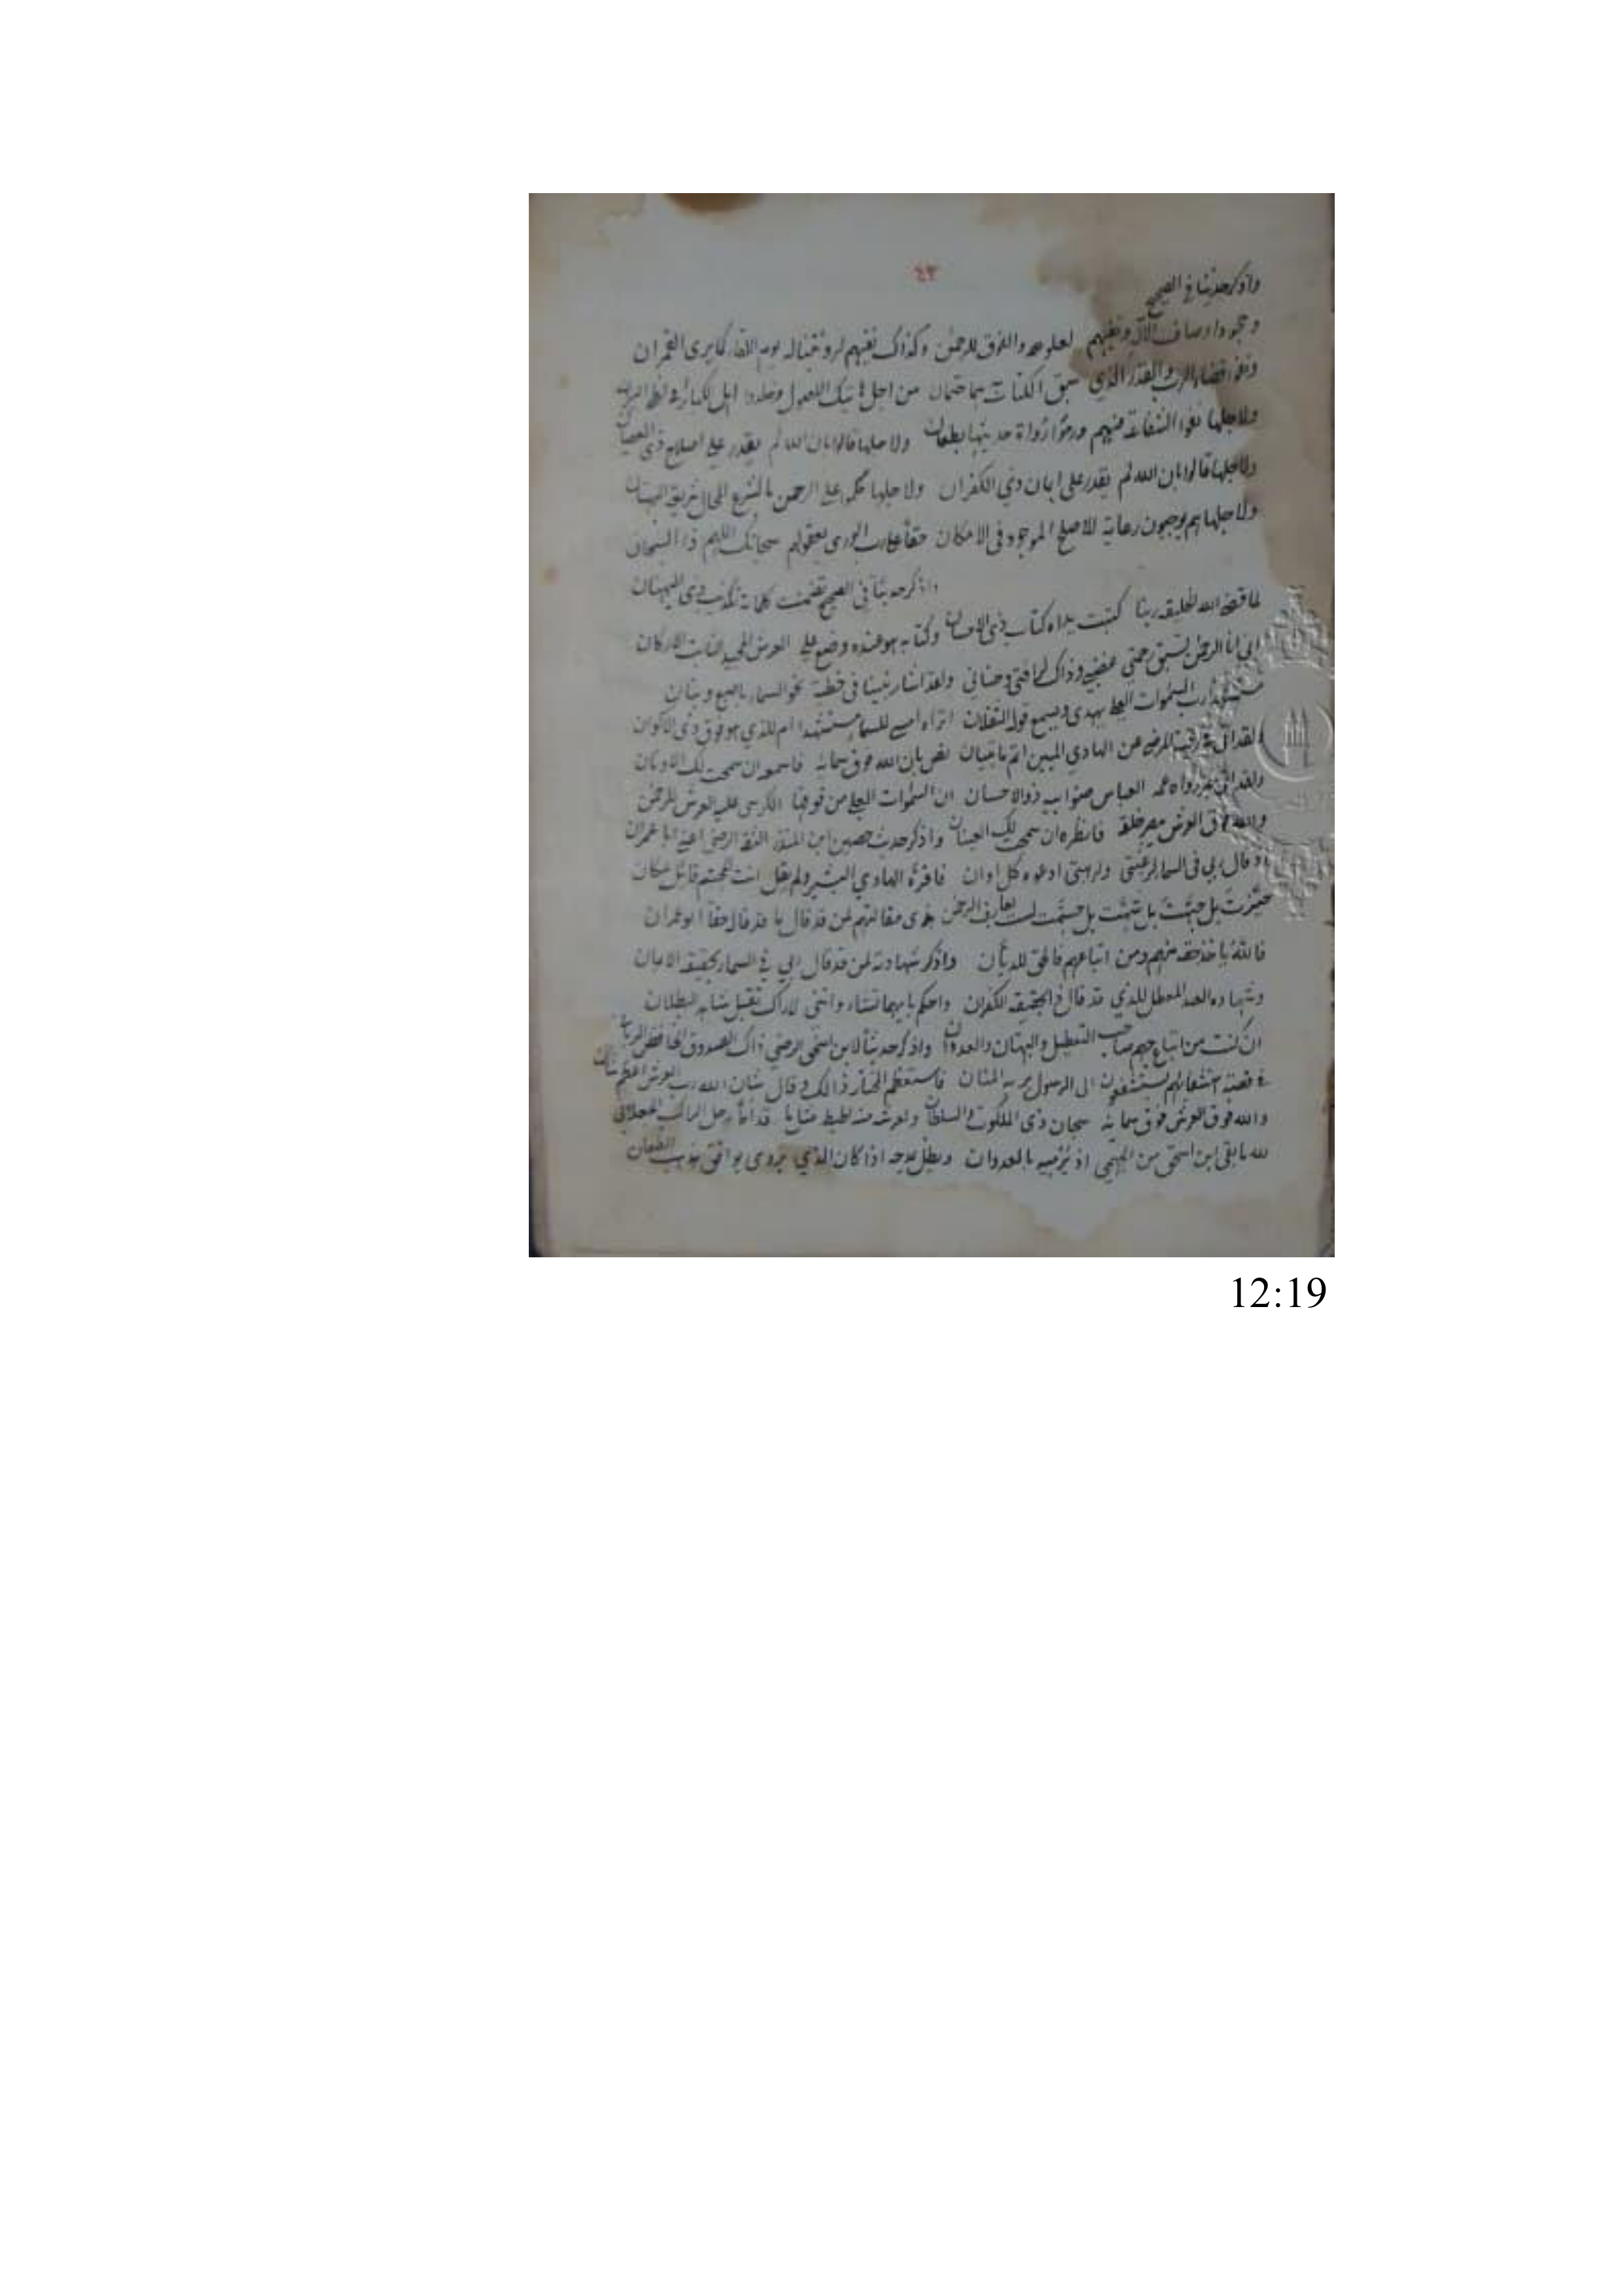 ٤٣
واذكر حديثا في الصحيح
وجحود اوصاف الاله ونفيهم لعلوه والفوق للرحمن وكذاك نفيهم لرؤيتنا له يوم اللقاء كما يرى القمران
ونفوا قضاء الرب والقدر الذي سبق الكتاب به من اجل هاتيك الاصول وخلدوا اهل الكبائر في لظى
ولاجلها نفوا الشفاعة فيهم ورموا رواة حديثها بطعان ولاجلها قالوا بان الله لم يقدر على اصلاح ذي العصيان
ولاجلها قالوا بان الله لم يقدر على ايمان ذي الكفران ولاجلها حكموا على الرحمن بالشرع المحال البهتان
ولاجلها هم يوجبون رعاية للاصلح الموجود في الامكان حقا على رب الورى بعقولهم سبحانك اللهم ذا السبحان
واذكر حديثا في الصحيح تضمنت كلماته تكذيب ذي البهتان
لما قضى الله الخليقة ربنا كتبت يداه كتاب ذي الاحسان وكتابه هو عنده وضع على العرش المجيد الثابت الاركان
اني انا الرحمن تسبق رحمتي غضبي وذاك لرأفتي وحناني ولقد اشار نبينا في خطبة نحو السماء باصبع وبنان
مستشهدا رب السموات العلى ليرى ويسمع قوله الثقلان اتراه امسى للسما مستشهدا ام للذي هو فوق ذي الاكوان
ولقد اتى في رقية المرضى عن الهادي المبين اتم ما تبيان نص بان الله فوق سمائه فاسمعه ان سمحت لك الاذنان
ولقد اتى خبر رواه عمه العباس صنو ابيه ذو الاحسان ان السموات العلى من فوقها الكرسي عليه العرش للرحمن
والله فوق العرش يبصر خلقه فانظره ان سمحت لك العينان واذكر حديث حصين ابن المنذر الثقة الرضي اعني ابا عمران
اذ قال ربي في السما لرغبتي ولرهبتي ادعوه كل اوان فاقره الهادي البشير ولم يقل انت المجسم قائل بمكان
حيزت بل جهيت بل شبهت بل جسمت لست بعارف الرحمن هذي مقالتهم لمن قد قال ما قد قاله حقا ابو عمران
فالله ياخذ حقه منهم ومن اتباعهم فالحق للديان واذكر شهادته لمن قد قال ربي في السماء بحقيقة الايمان
وشهادة العدل المعطل للذي قد قال ذا بحقيقة الكفران واحكم بايهما تشاء وانني لاراك تقبل شاهد البطلان
ان كنت من اتباع جهم صاحب التعطيل والبهتان والعدوان واذكر حديثا لابن اسحق الرضي ذاك الصدوق الحافظ الرباني
في قصة استسقائهم يستشفعون الى الرسول بربه المنان فاستعظم المختار ذالك وقال شان الله رب العرش اعظم شان
والله فوق العرش فوق سمائه سبحان ذي الملكوت والسلطان ولعرشه منه اطيط مثل ما قد اط رحل الراكب العجلان
لله ما لقي ابن اسحق من الجهمي اذ يرميه بالعدوان ويظل يمدحه اذا كان الذي يروي يوافق مذهب الطعان
12:19